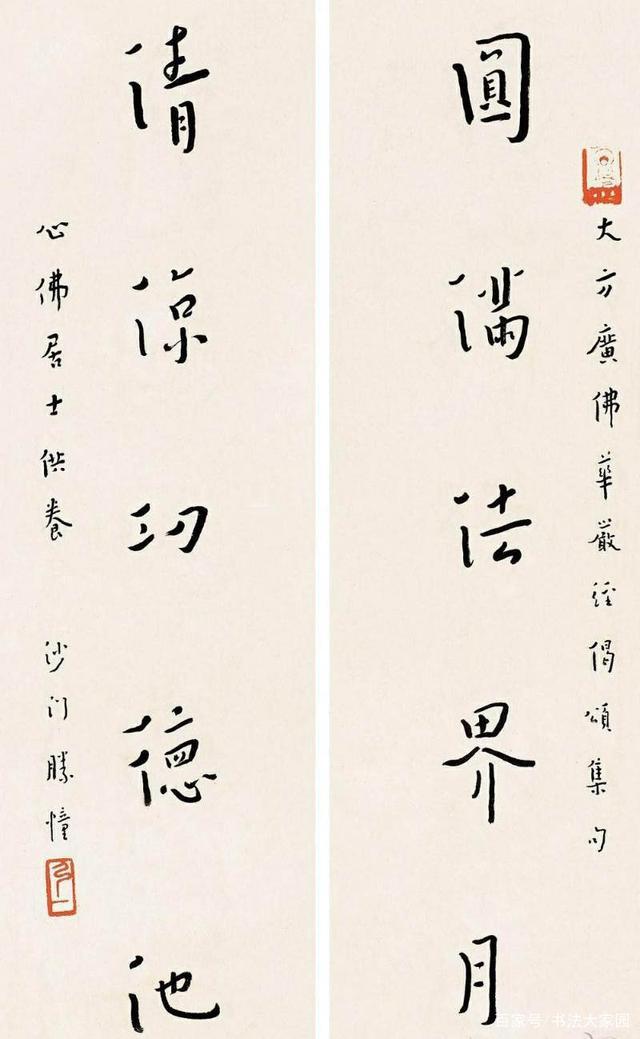 大方廣佛華嚴經偈頌集句
圓滿法界月
清涼功德池
心佛居士供養 沙門勝幢
弘一
百家号/书法大家园